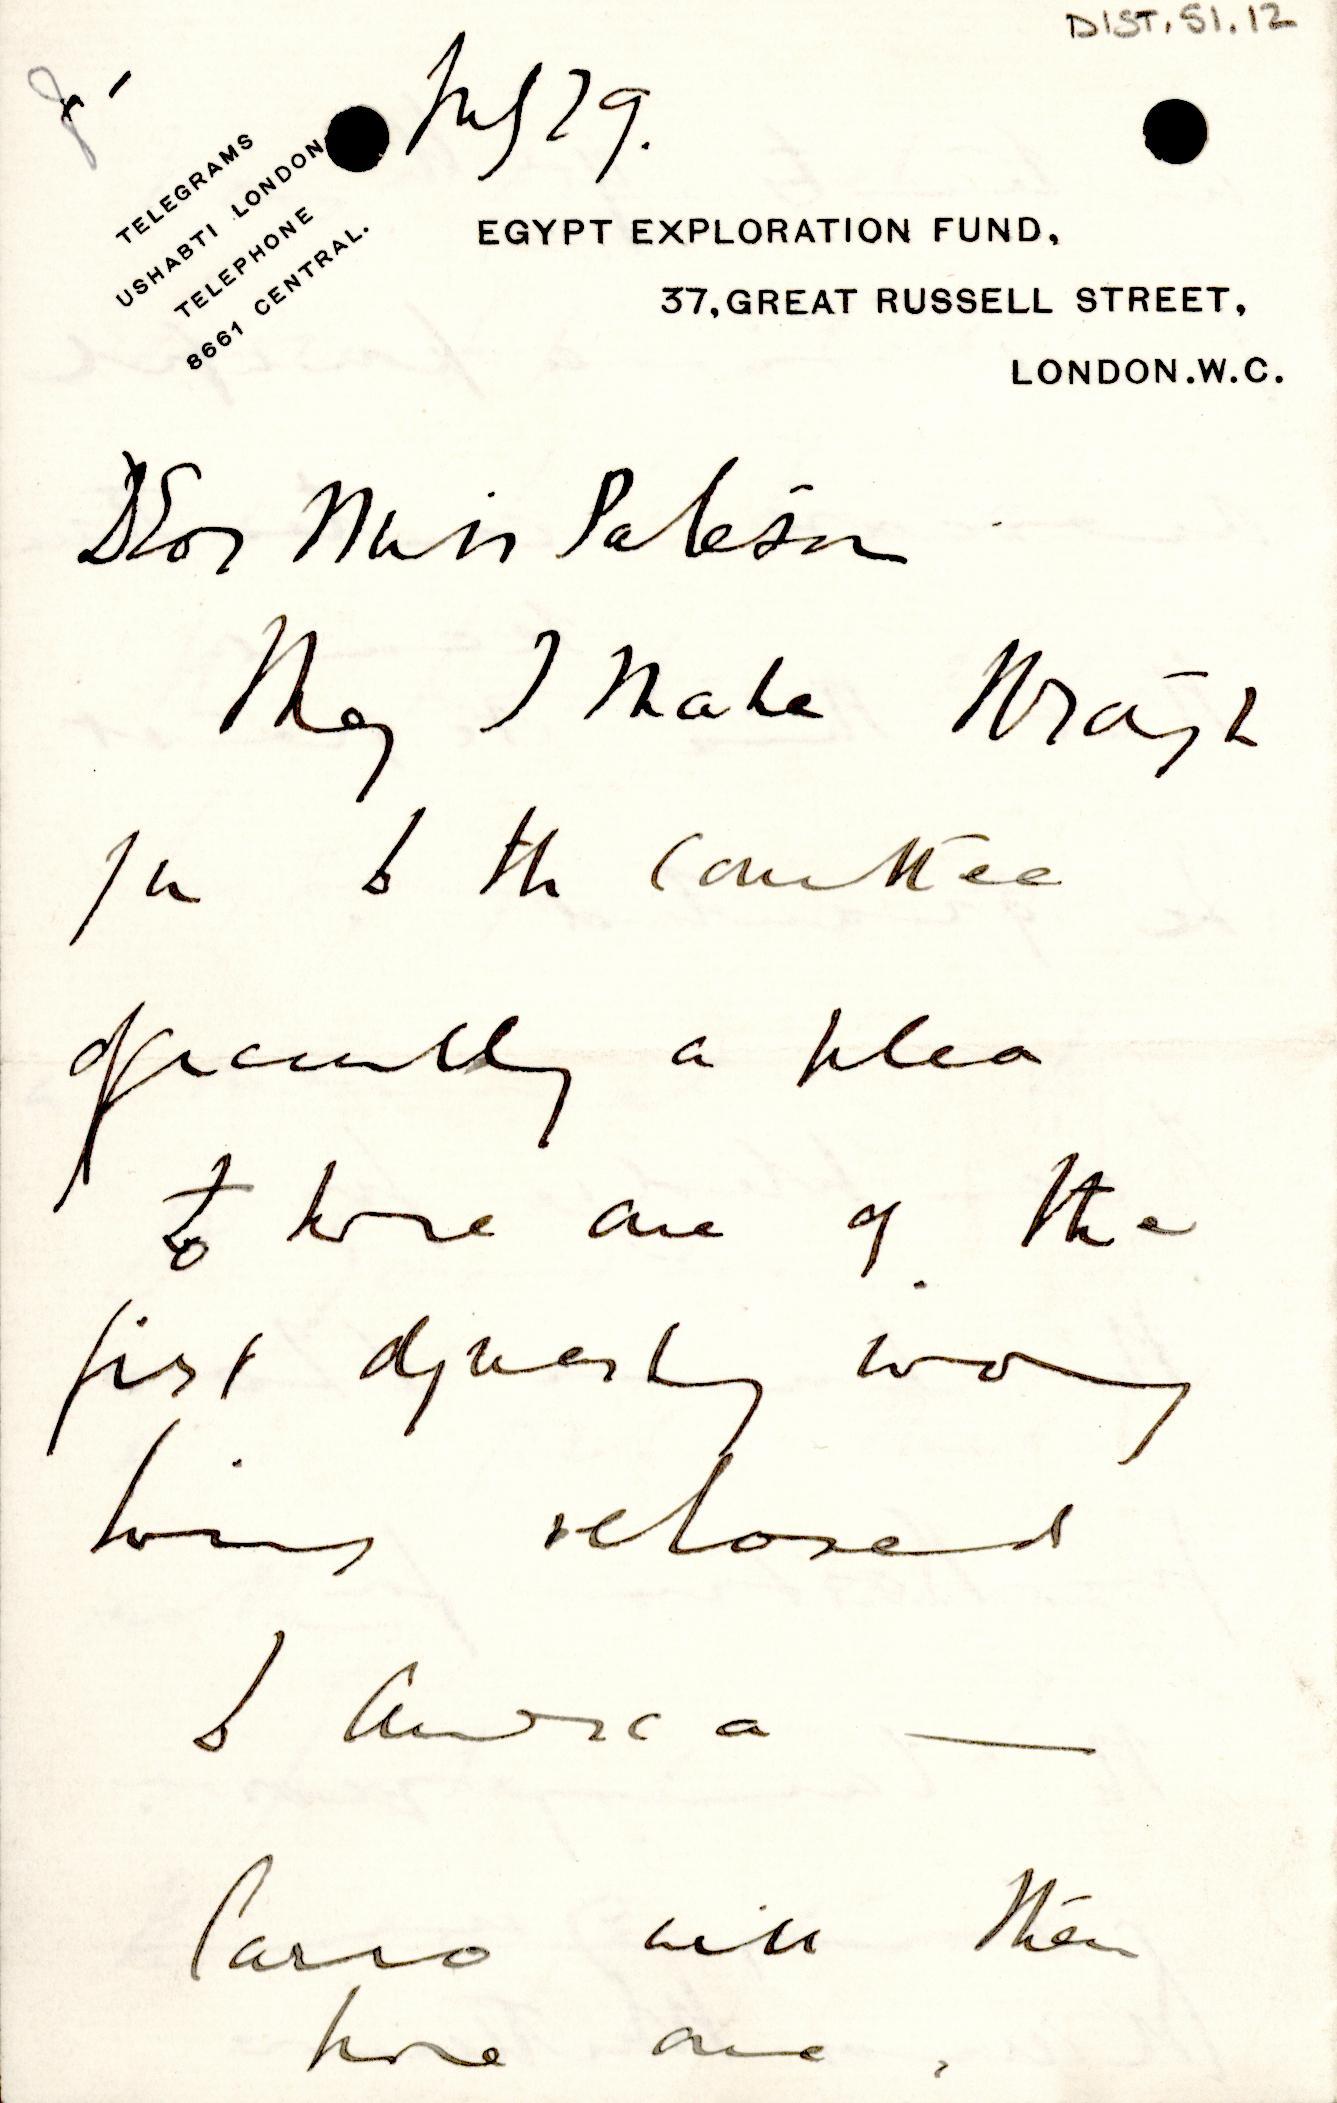 DIST. 51.12
July 29.
TELEGRAMS
USHABTI LONDON
TELEPHONE
8661 CENTRAL.
EGYPT EXPLORATION FUND,
37, GREAT RUSSELL STREET,
LONDON. W.C.
Dear Miss Paterson
May I make through
you to the Committee
officially a plea
to have one of the
first dynasty ivory
kings
to America —
Cairo will then
have one.